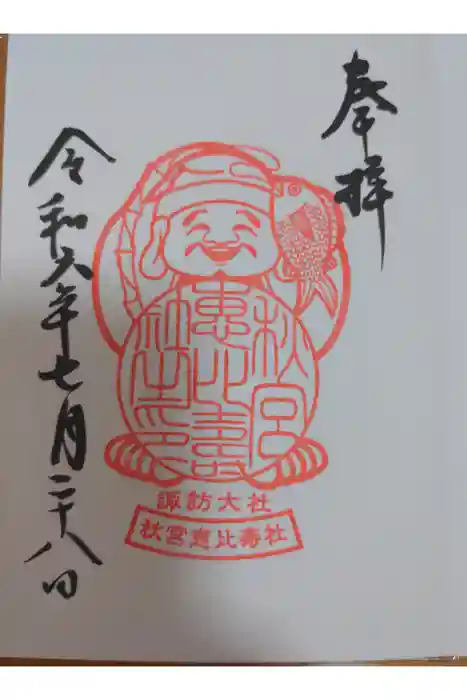 奉拝
秋宮
恵比寿
社之印
諏訪大社
秋宮恵比寿社
令和六年七月二十八日